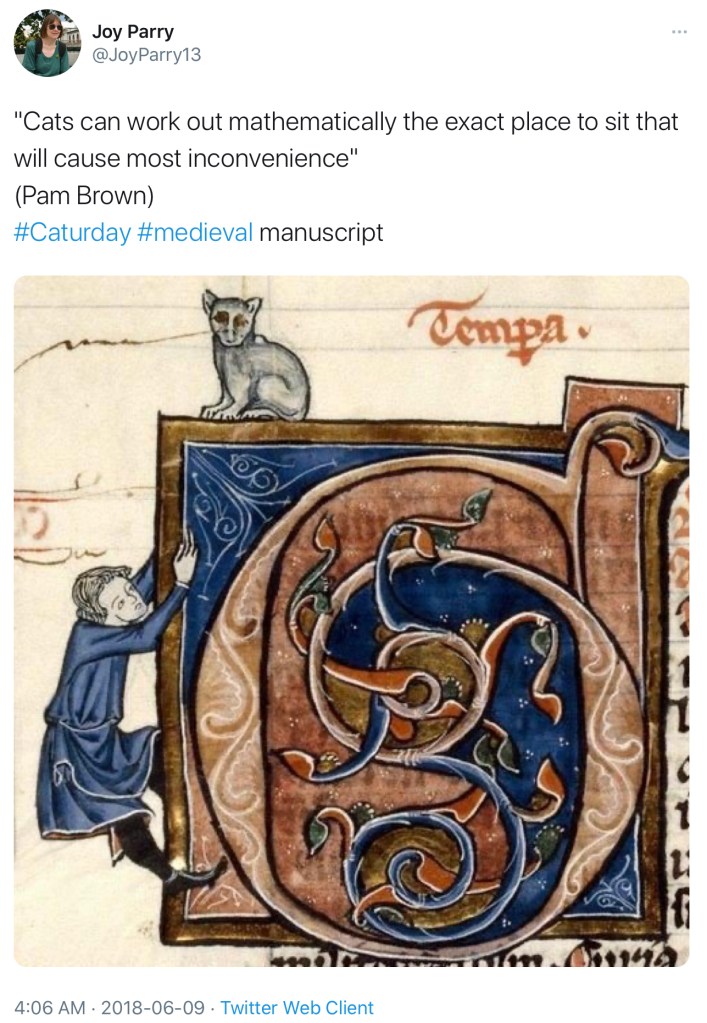 Joy Parry
@JoyParry13
"Cats can work out mathematically the exact place to sit that
will cause most inconvenience"
(Pam Brown)
#Caturday #medieval manuscript
Tempa.
4:06 AM · 2018-06-09 · Twitter Web Client